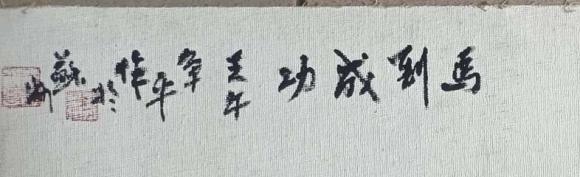 馬到成功
午
平
作於
蘇州